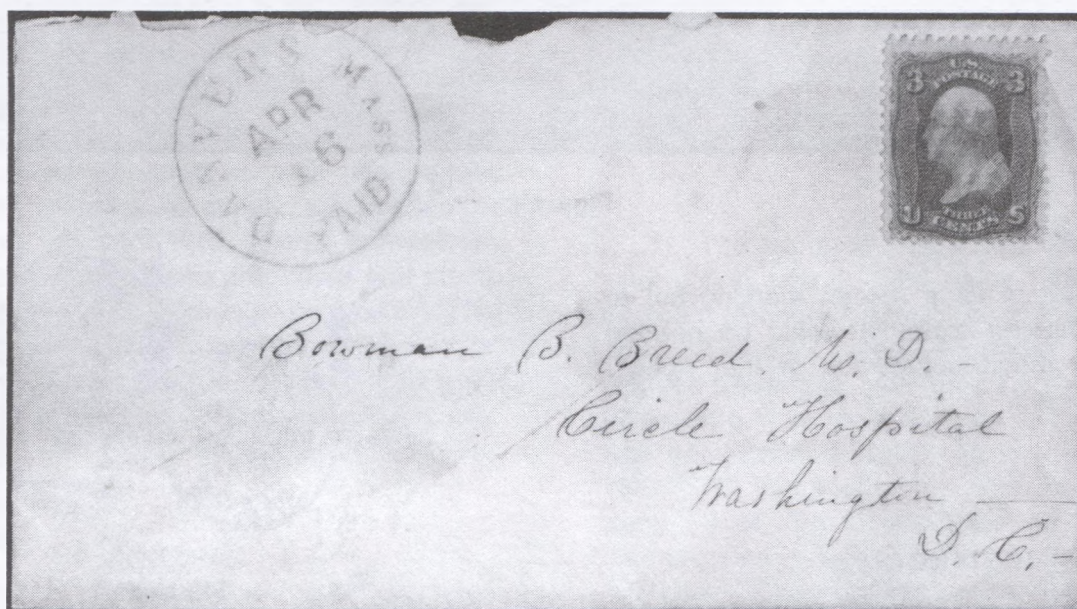 DANVERS MASS
APR
16
PAID
3 U.S. 3
POSTAGE
THREE
U CENTS S
Bowman B. Breed. M. D. -
Circle Hospital
Washington —
D. C. -